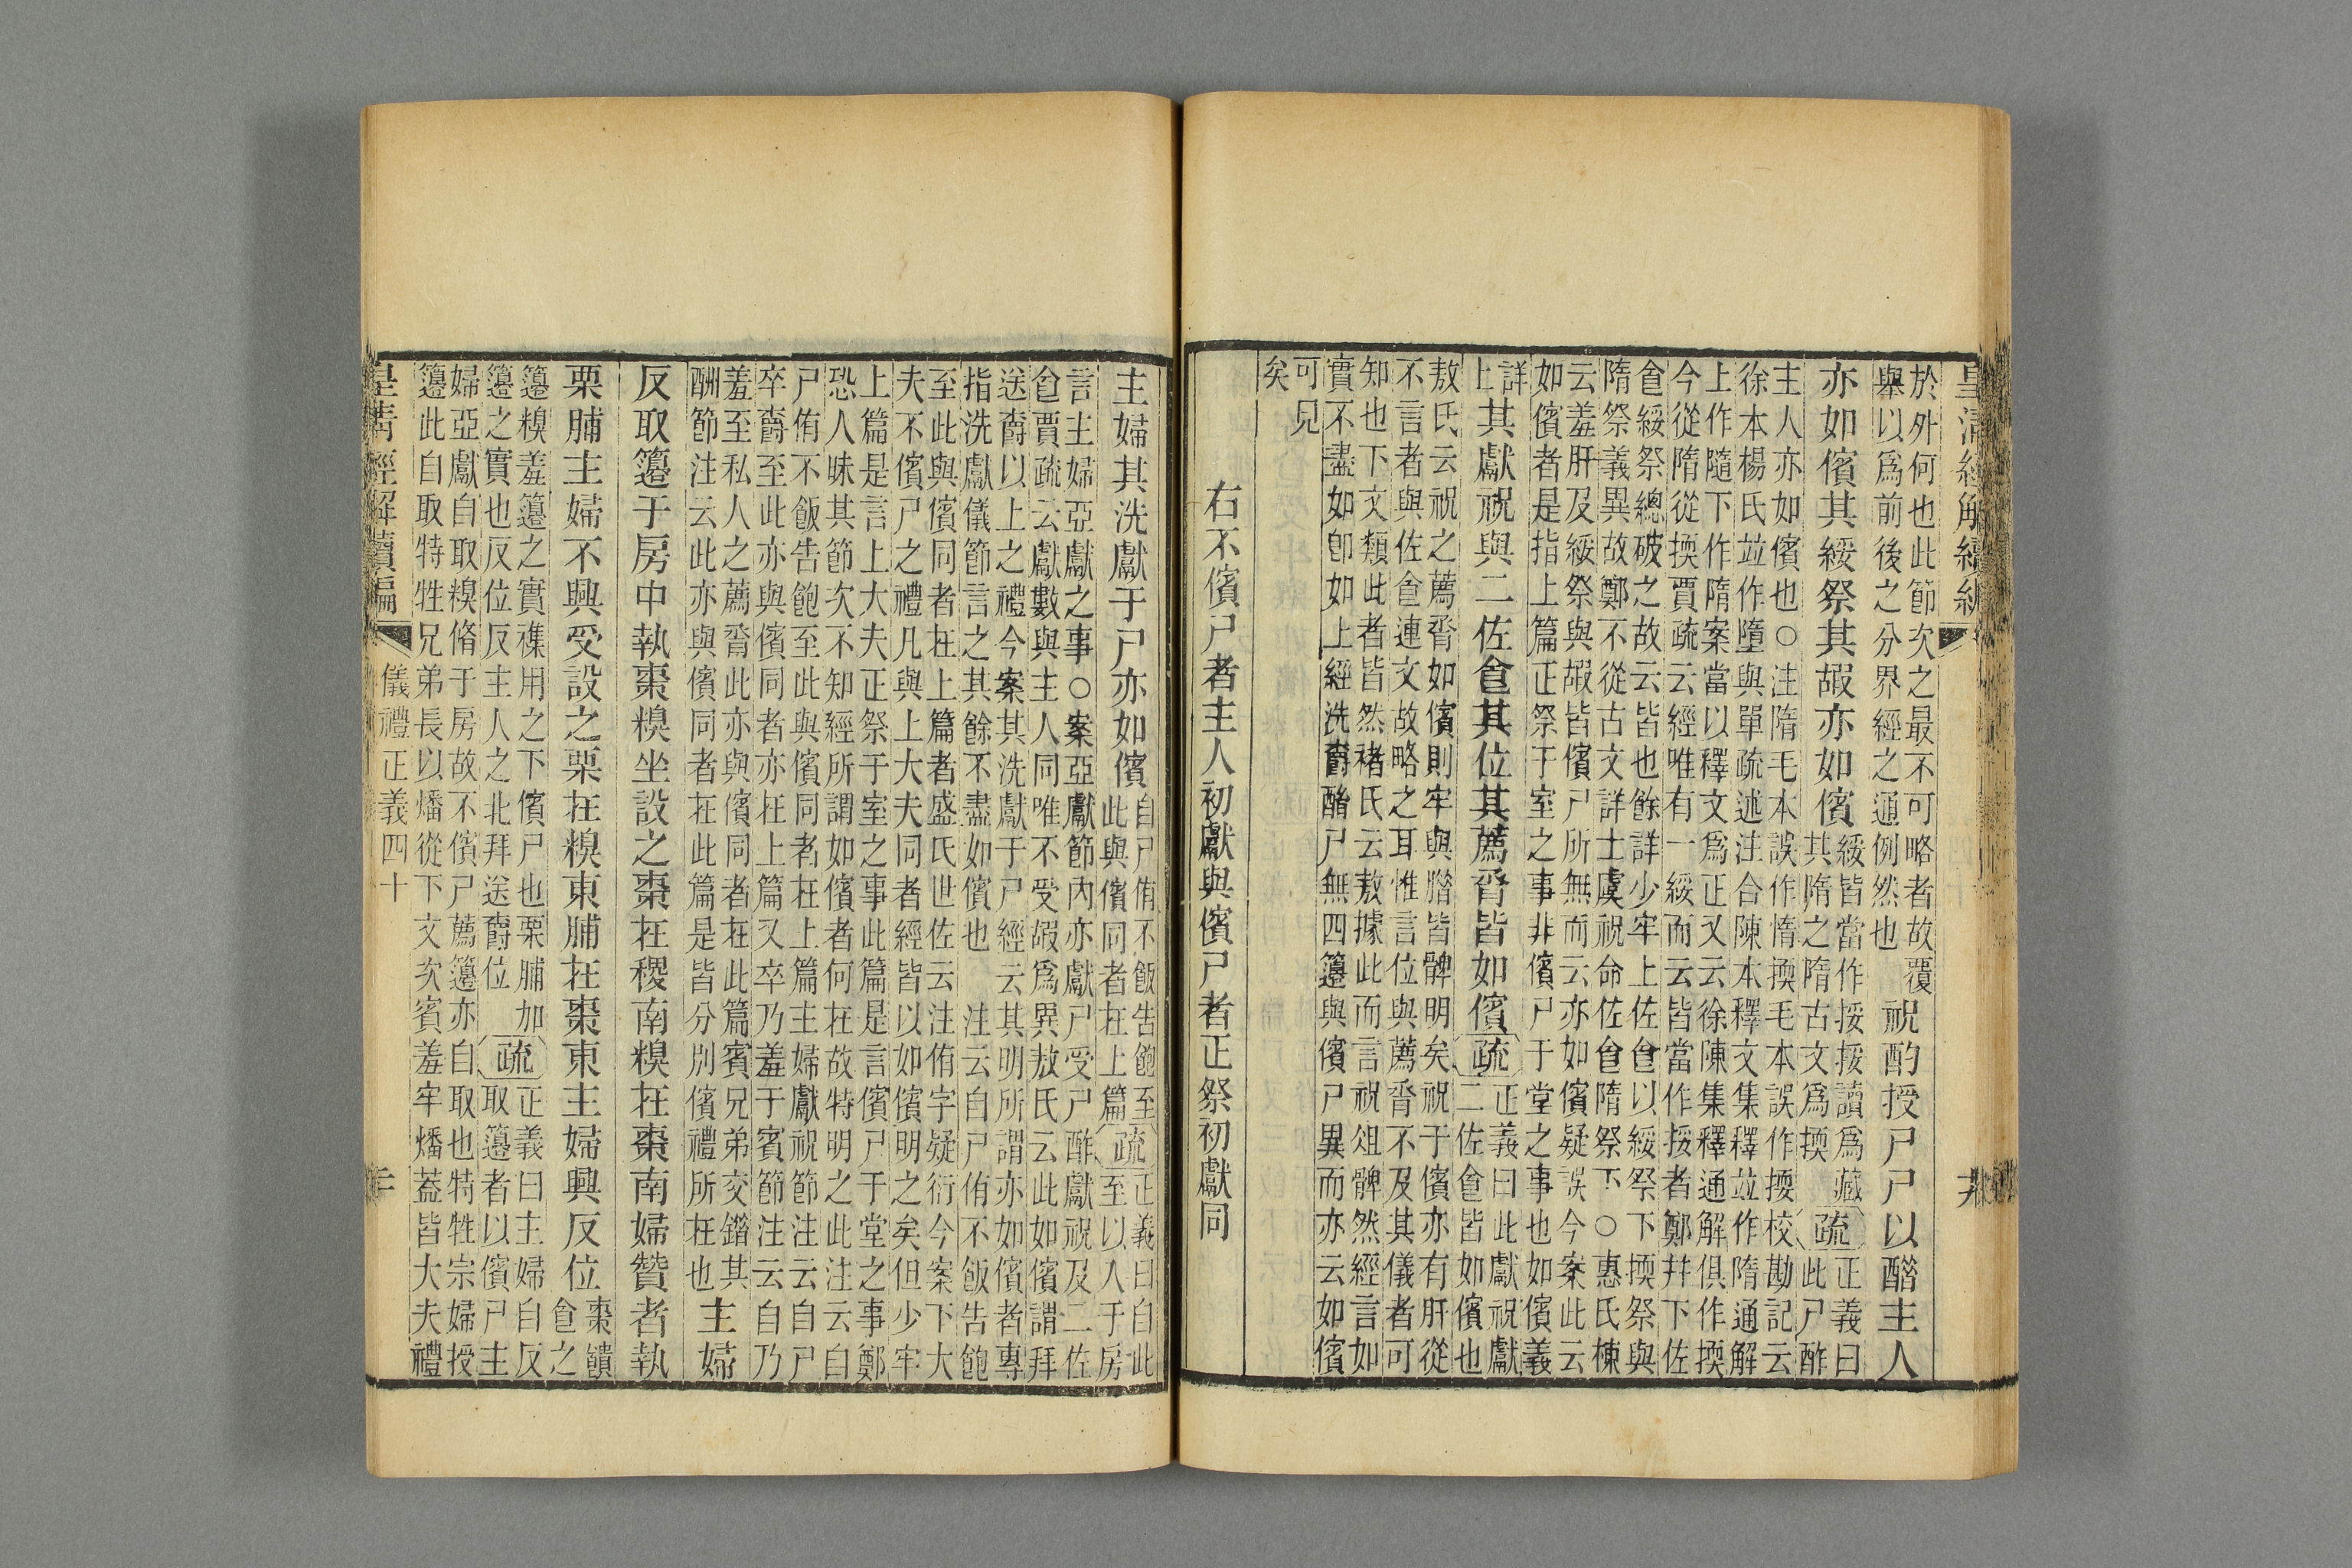 皇清經解續編
於外何也此節次之最不可略者故覆
舉以爲前後之分界經之通例然也
祝酌授尸尸以醋主人
亦如儐其綏祭其嘏亦如儐
綏皆當作挼挼讀爲藏
其隋之隋古文爲擩
疏
正義曰
此尸酢
主人亦如儐也○注隋毛本誤作惰擩毛本誤作㨎校勘記云
徐本楊氏並作墮與單疏述注合陳本釋文集釋並作隋通解
上作隨下作隋案當以釋文爲正又云徐陳集釋通解俱作擩
今從隋從擩賈疏云經唯有一綏而云皆當作挼者鄭幷下佐
食綏祭總破之故云皆也餘詳少牢上佐食以綏祭下擩祭與
隋祭義異故鄭不從古文詳士虞祝命佐食隋祭下○惠氏棟
云羞肝及綏祭與嘏皆儐尸所無而云亦如儐疑誤今案此云
如儐者是指上篇正祭于室之事非儐尸于堂之事也如儐義
詳
上
其獻祝與二佐食其位其薦脀皆如儐
疏
正義曰此獻祝獻
二佐食皆如儐也
敖氏云祝之薦脀如儐則牢與腊皆髀明矣祝于儐亦有肝從
不言者與佐食連文故略之耳惟言位與薦脀不及其儀者可
知也下文類此者皆然褚氏云敖據此而言祝俎髀然經言如
實不盡如卽如上經洗爵酳尸無四籩與儐尸異而亦云如儐
可見
矣
右不儐尸者主人初獻與儐尸者正祭初獻同
主婦其洗獻于尸亦如儐
自尸侑不飯告飽至
此與儐同者在上篇
疏
正義曰自此
至以入于房
言主婦亞獻之事○案亞獻節內亦獻尸受尸酢獻祝及二佐
食賈疏云獻數與主人同唯不受嘏爲異敖氏云此如儐謂拜
送爵以上之禮今案其洗獻于尸經云其明所謂亦如儐者專
指洗獻儀節言之其餘不盡如儐也
注云自尸侑不飯告飽
至此與儐同者在上篇者盛氏世佐云注侑字疑衍今案下大
夫不儐尸之禮凡與上大夫同者經皆以如儐明之矣但少牢
上篇是言上大夫正祭于室之事此篇是言儐尸于堂之事鄭
恐人昧其節次不知經所謂如儐者何在故特明之此注云自
尸侑不飯告飽至此與儐同者在上篇主婦獻祝節注云自尸
卒爵至此亦與儐同者亦在上篇又卒乃羞于賓節注云自乃
羞至私人之薦脀此亦與儐同者在此篇賓兄弟交錯其
酬節注云此亦與儐同者在此篇是皆分別儐禮所在也
主婦
反取籩于房中執棗糗坐設之棗在稷南糗在棗南婦贊者執
栗脯主婦不興受設之栗在糗東脯在棗東主婦興反位
棗饋
食之
籩糗羞籩之實襍用之下儐尸也栗脯加
籩之實也反位反主人之北拜送爵位
疏
正義曰主婦自反
取籩者以儐尸主
婦亞獻自取糗脩于房故不儐尸薦籩亦自取也特牲宗婦授
籩此自取特牲兄弟長以燔從下文次賓羞牢燔蓋皆大夫禮
皇清經解續編
儀禮正義四十